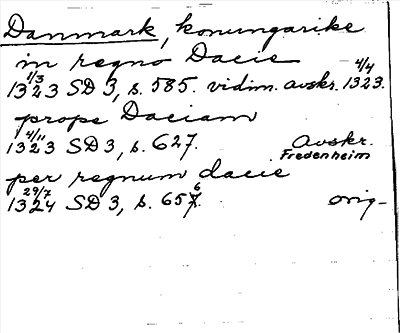 Danmark, konungarike
in regno Dacie
1/3 1323 SD 3, s. 585. vidim. avskr. 4/4 1323.
prope Daciam
4/11 1323 SD 3, s. 627. Avskr. Fredenheim
per regnum dacie
29/7 1324 SD 3, s. 657. 6 orig-